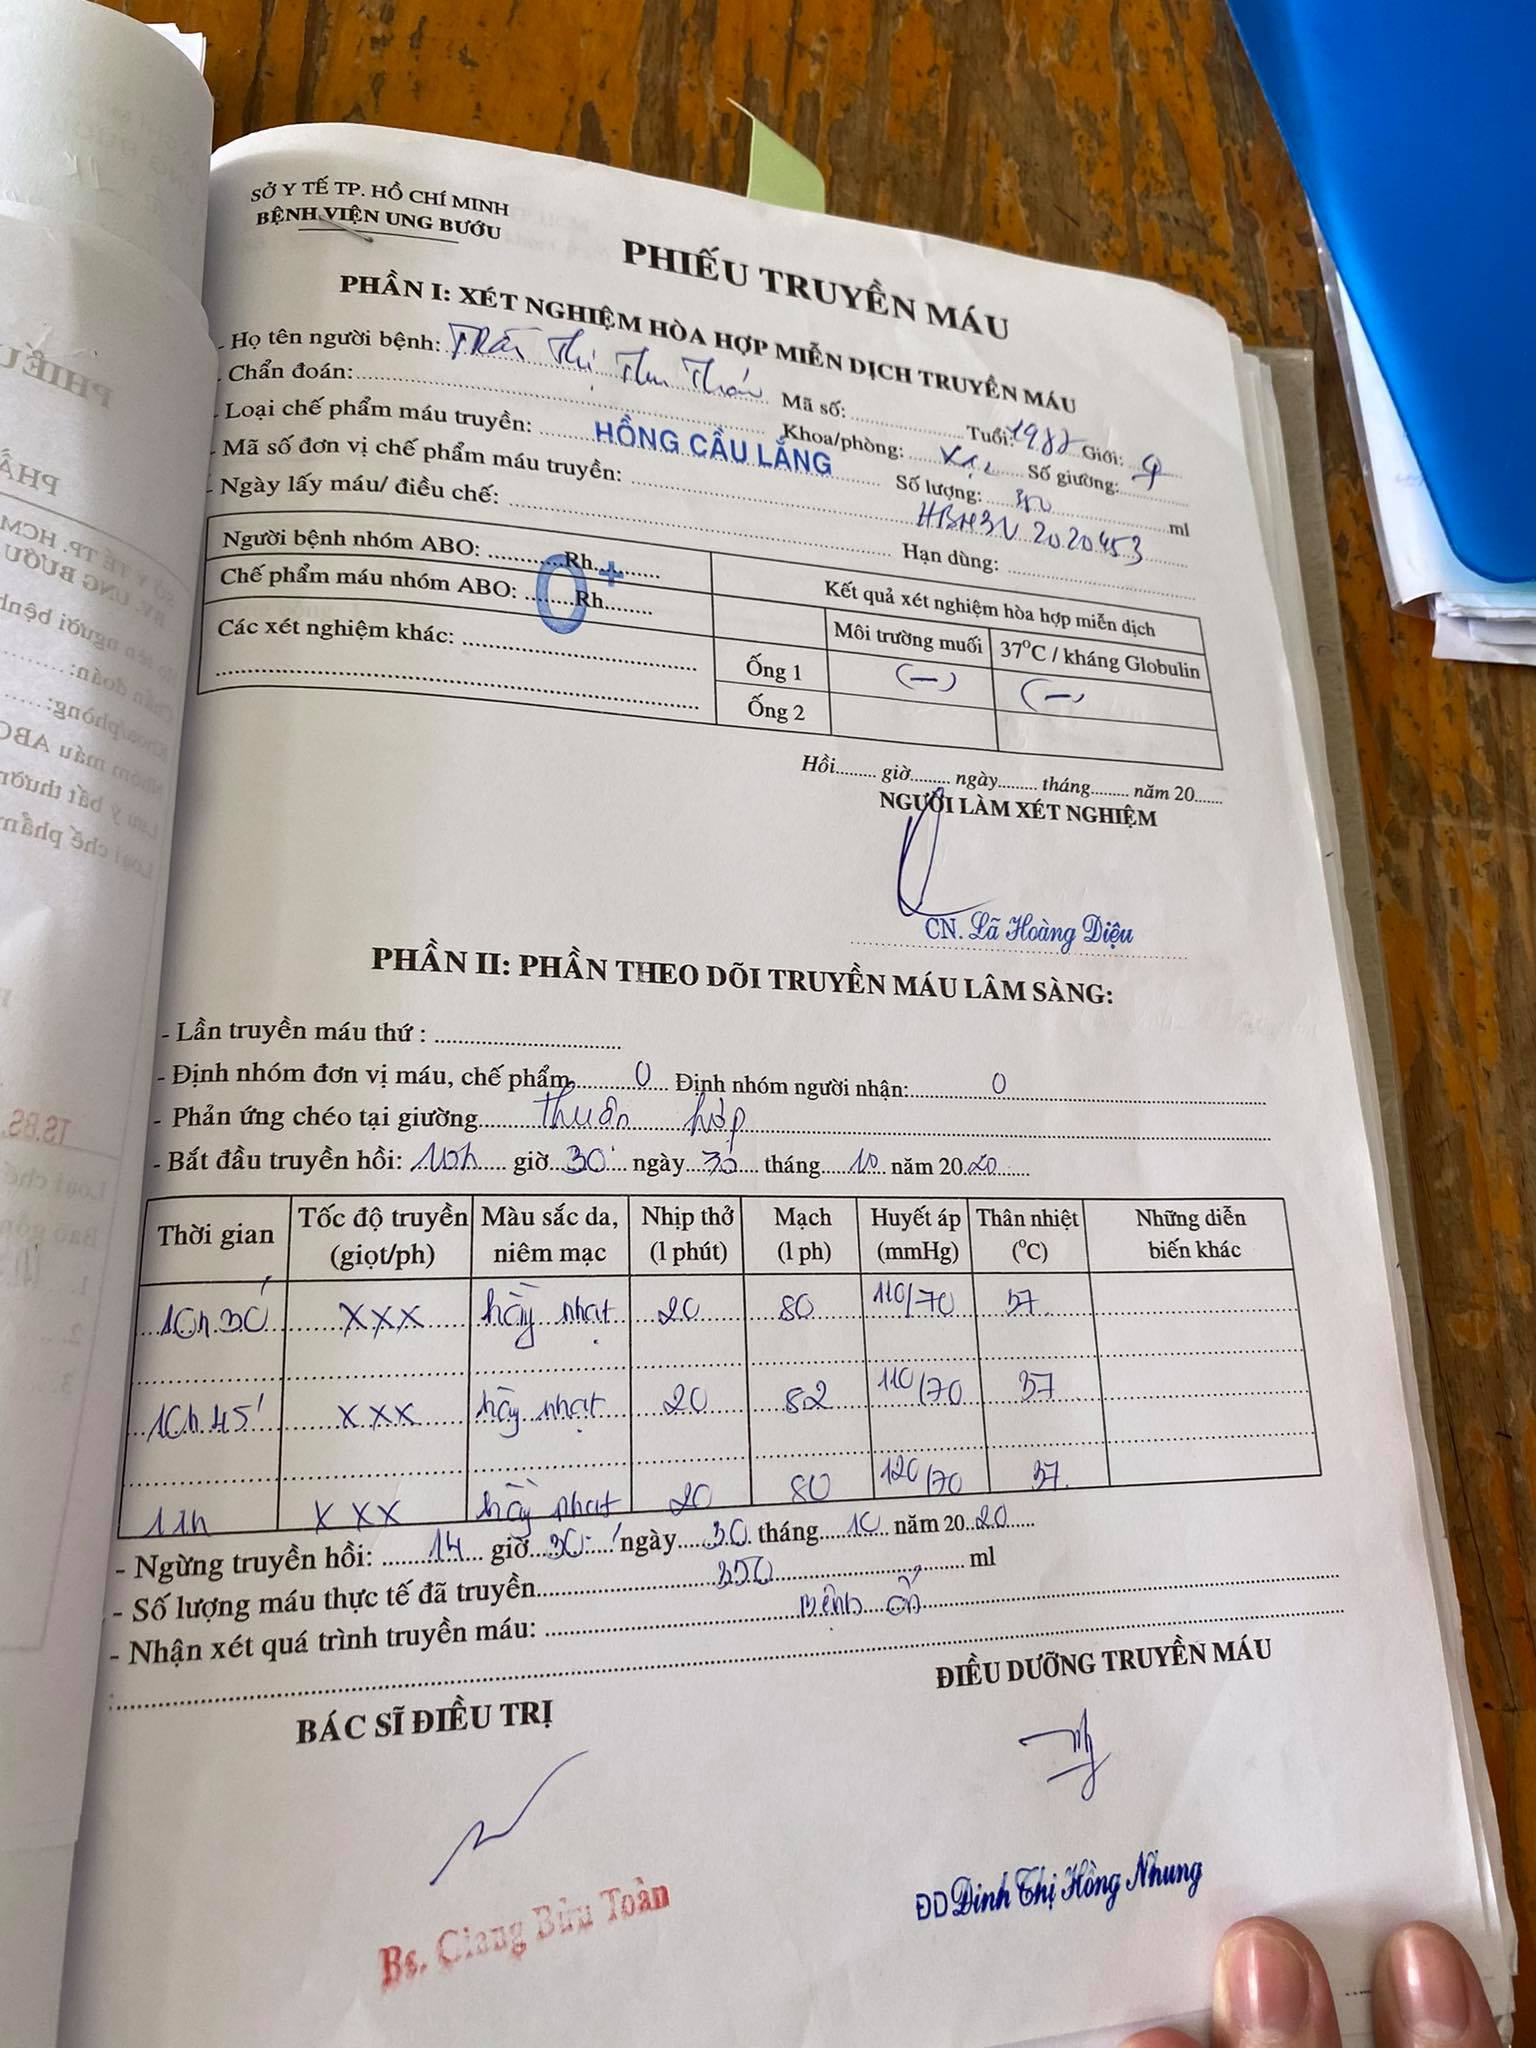 SỞ Y TẾ TP. HỒ CHÍ MINH
BỆNH VIỆN UNG BƯỚU
PHIẾU TRUYỀN MÁU
PHẦN I: XÉT NGHIỆM HÒA HỢP MIỄN DỊCH TRUYỀN MÁU
- Họ tên người bệnh: Trần Thị Thu Mã số: Tuổi: Giới:
- Chẩn đoán: Khoa/phòng: Số giường:
- Loại chế phẩm máu truyền: HỒNG CẦU LẮNG Số lượng: ml
- Mã số đơn vị chế phẩm máu truyền:
- Ngày lấy máu/ điều chế: Hạn dùng:
Người bệnh nhóm ABO: Rh
Chế phẩm máu nhóm ABO: Rh
O+
Các xét nghiệm khác:
Kết quả xét nghiệm hòa hợp miễn dịch
Môi trường muối 37°C / kháng Globulin
Ống 1 (-) (-)
Ống 2
Hồi giờ ngày tháng năm 20
NGƯỜI LÀM XÉT NGHIỆM
CN. Lã Hoàng Diệu
PHẦN II: PHẦN THEO DÕI TRUYỀN MÁU LÂM SÀNG:
- Lần truyền máu thứ :
- Định nhóm đơn vị máu, chế phẩm O Định nhóm người nhận: O
- Phản ứng chéo tại giường thuận hợp
- Bắt đầu truyền hồi: 10h giờ 30' ngày 30 tháng 10 năm 2020
Thời gian Tốc độ truyền (giọt/ph) Màu sắc da, niêm mạc Nhịp thở (l phút) Mạch (l ph) Huyết áp (mmHg) Thân nhiệt (°C) Những diễn biến khác
10h30' XXX hồng nhạt 20 80 110/70 37
10h45' XXX hồng nhạt 20 82 110/70 37
11h XXX hồng nhạt 20 80 120/70 37
- Ngừng truyền hồi: 14 giờ 30' ngày 30 tháng 10 năm 2020
- Số lượng máu thực tế đã truyền 350 ml
- Nhận xét quá trình truyền máu: Bệnh ổn
BÁC SĨ ĐIỀU TRỊ
ĐIỀU DƯỠNG TRUYỀN MÁU
Bs. Giang Bửu Toàn
ĐD Đinh Thị Hồng Nhung